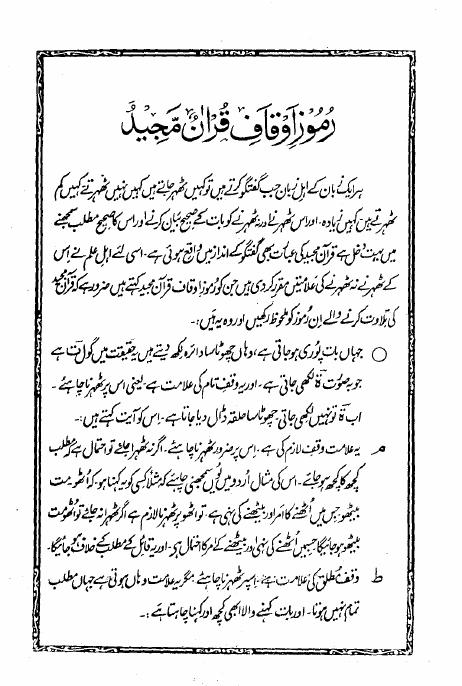 رُمُوزِ اَوقافِ قُرْاٰن مَّجِیْدْ
ہر ایک زبان کے اہلِ زبان جب گفتگو کرتے ہیں تو کہیں ٹھہر جاتے ہیں کہیں نہیں ٹھہرتے کہیں کم
ٹھہرتے ہیں کہیں زیادہ۔ اور اس ٹھہرنے اور نہ ٹھہرنے کو بات کے صحیح بیان کرنے اور اس کا صحیح مطلب سمجھنے
میں بہت دخل ہے قرآن مجید کی عبارت بھی گفتگو کے انداز میں واقع ہوئی ہے۔ اسی لئے اہلِ علم نے اس
کے ٹھہرنے نہ ٹھہرنے کی علامتیں مقرر کر دی ہیں جن کو رموزِ اوقاف قرآن مجید کہتے ہیں ضرور ہے کہ قرآن مجید
کی تلاوت کرنے والے اِن رُموز کو ملحوظ رکھیں اور وہ یہ ہیں:۔
○ جہاں بات پُوری ہو جاتی ہے، وہاں چھوٹا سا دائرہ لکھ دیتے ہیں یہ حقیقت میں گول ت ہے
جو بہ صُورت ۃ لکھی جاتی ہے۔ اور یہ وقفِ تام کی علامت ہے یعنی اس پر ٹھہرنا چاہئے۔
اب ۃ تو نہیں لکھی جاتی۔ چھوٹا سا حلقہ ڈال دیا جاتا ہے۔ اس کو آیت کہتے ہیں:۔
مـ یہ علامت وقفِ لازم کی ہے۔ اس پر ضرور ٹھہرنا چاہئے۔ اگر نہ ٹھہرا جائے تو احتمال ہے کہ مطلب
کچھ کا کچھ ہو جائے۔ اس کی مثال اُردو میں یُوں سمجھنی چاہئے کہ مثلاً کسی کو یہ کہنا ہو۔ کہ اُٹھو۔ مت
بیٹھو جس میں اُٹھنے کا امر اور بیٹھنے کی نہی ہے۔ تو اٹھو پر ٹھہرنا لازم ہے اگر ٹھہرا نہ جائے تو اُٹھو مت
بیٹھو ہو جائیگا جسمیں اُٹھنے کی نہی اور بیٹھنے کے امر کا احتمال ہے۔ اور یہ قائل کے مطلب کے خلاف ہو جائیگا۔
ط وقفِ مطلق کی علامت ہے۔ اسپر ٹھہرنا چاہئے۔ مگر یہ علامت وہاں ہوتی ہے جہاں مطلب
تمام نہیں ہوتا۔ اور بات کہنے والا ابھی کچھ اور کہنا چاہتا ہے:۔